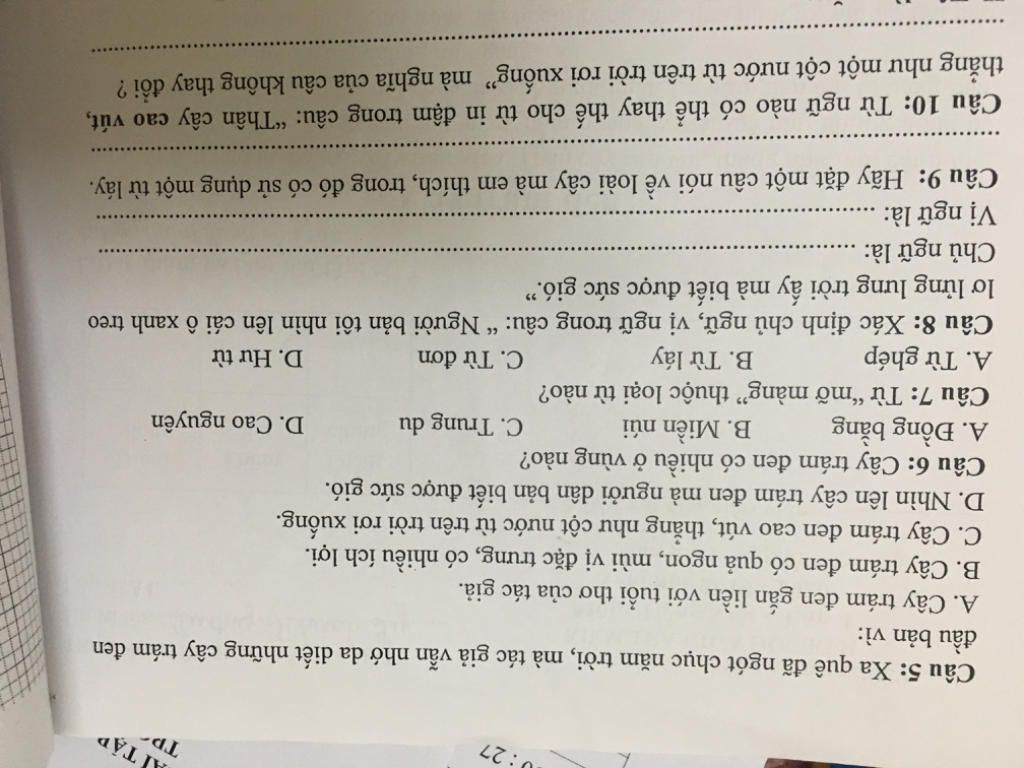 ÀI TẬP
TP
0 : 27
Câu 5: Xa quê đã ngót chục năm trời, mà tác giả vẫn nhớ da diết những cây trám đen
đầu bản vì:
A. Cây trám đen gắn liền với tuổi thơ của tác giả.
B. Cây trám đen có quả ngon, mùi vị đặc trưng, có nhiều ích lợi.
C. Cây trám đen cao vút, thẳng như cột nước từ trên trời rơi xuống.
D. Nhìn lên cây trám đen mà người dân bản biết được sức gió.
Câu 6: Cây trám đen có nhiều ở vùng nào?
A. Đồng bằng B. Miền núi C. Trung du D. Cao nguyên
Câu 7: Từ “mỡ màng” thuộc loại từ nào?
A. Từ ghép B. Từ láy C. Từ đơn D. Hư từ
Câu 8: Xác định chủ ngữ, vị ngữ trong câu: “ Người bản tôi nhìn lên cái ô xanh treo
lơ lửng lưng trời ấy mà biết được sức gió.”
Chủ ngữ là: ....................................................
Vị ngữ là: ....................................................
Câu 9: Hãy đặt một câu nói về loài cây mà em thích, trong đó có sử dụng một từ láy.
....................................................
Câu 10: Từ ngữ nào có thể thay thế cho từ in đậm trong câu: “Thân cây cao vút,
thẳng như một cột nước từ trên trời rơi xuống” mà nghĩa của câu không thay đổi ?
....................................................